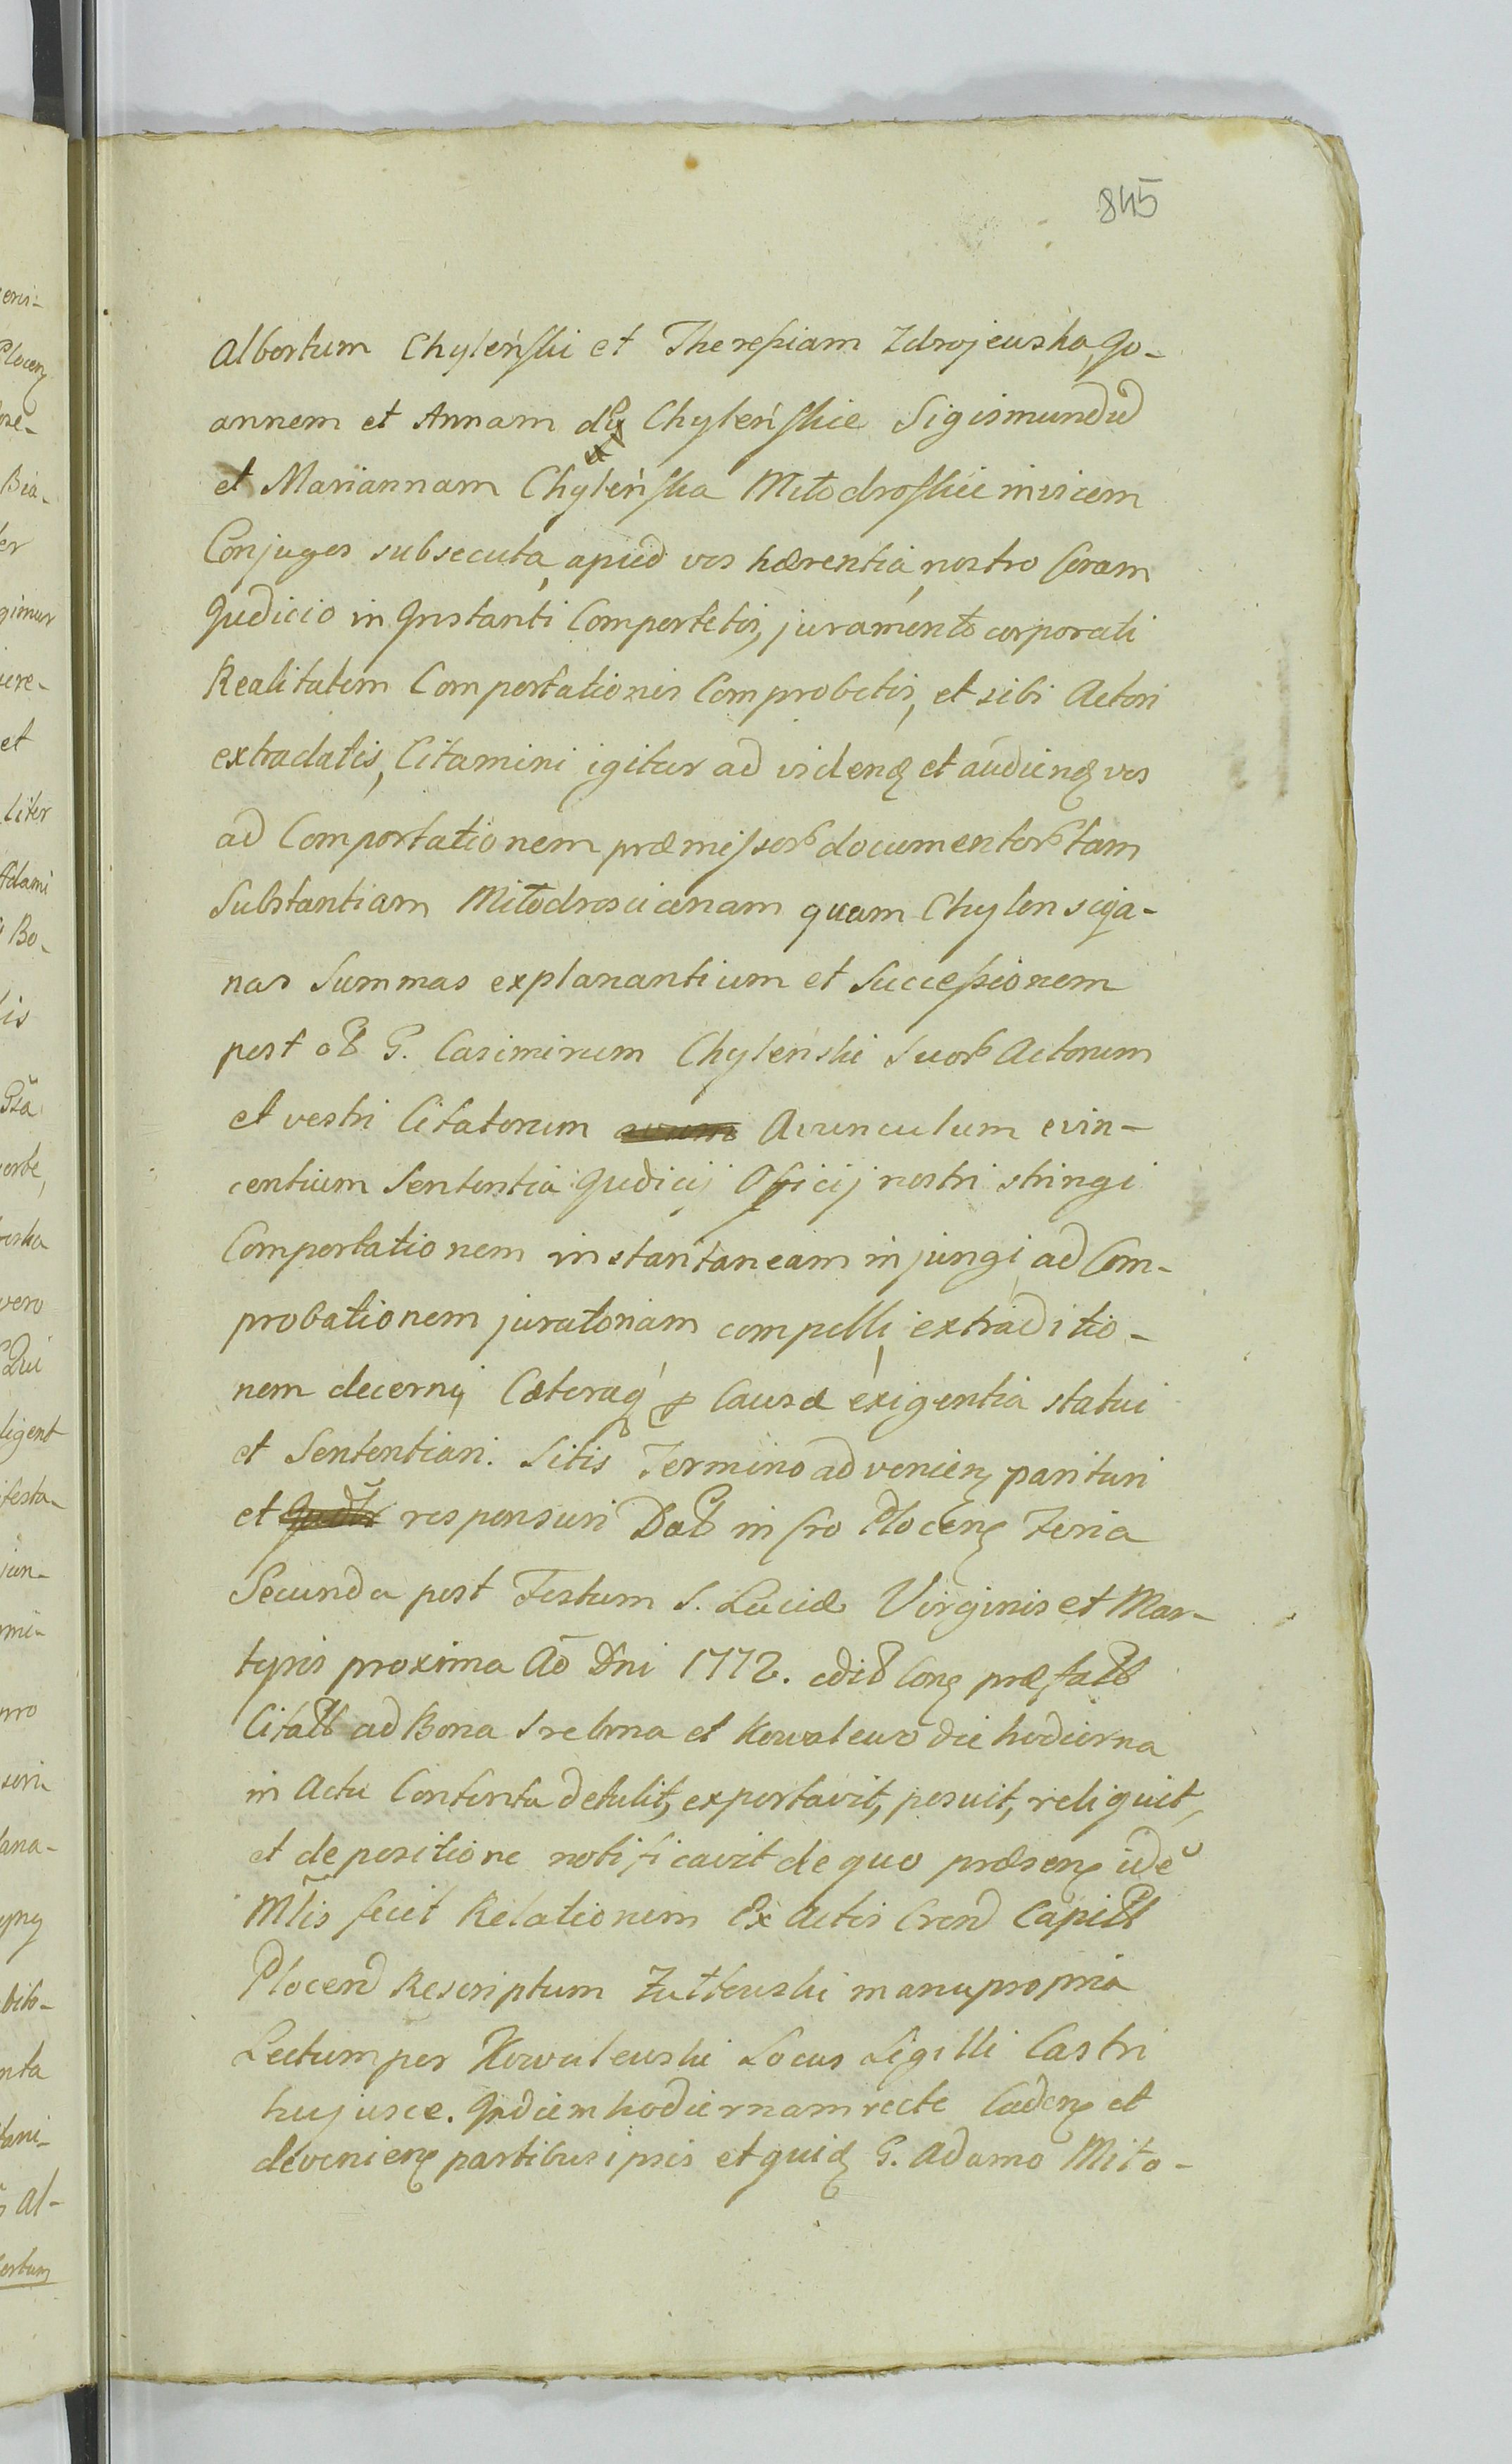 845
Albertum Chyleński et Theresiam Zdrojewska, Jo-
annem et Annam Chyleńskie Sigismundū
et Mariannam Chyleńska Miłodroskie invicem
Conjuges subsecuta, apud vos hærentia, nostro coram
Judicio in Instanti Comportetis, juramento corporali
Realitatem Comportationis Comprobetis, et sibi Actori
extradatis, Citamini igitur ad videnđ et audienđ vos
ad Comportationem præmissorꝫ documentorꝫ tam
Substantiam Miłodroscianam quam Chylenscia-
nas Summas explanantium et Successionem
post ob G. Casimirum Chyleński suorꝫ Actorum
et vestri Citatorum Avunculum evin-
centium Sententia Judicij Officij nostri stringi
Comportationem instantaneam injungi, ad Com-
probationem juratoriam compelli, extraditio-
nem decerni, Cæteraq́ꝫ p Causæ exigentia statui
et Sententiari. Sitis Termino advenienꝫ parituri
et responsuri Datt in Cro Plocenꝫ Feria
Secunda post Festum S. Luciæ Virginis et Mar-
tyris proxima Aō Dni 1772. edit Conꝫ præfatt
Citatt ad Bona Srebrna et Kowalewo die hodierna
in Actu Contenta detulit, exportavit, posuit, reliquit,
et de positione notificavit de quo præsenꝫ idē
Mlis fecit Relationem Ex Actis Cren Capitt
Plocen Rescriptum Żułtowski manu propria
Lectum per Kowalewski Locus Sigilli Castri
hujusce. In diem hodiernam recte Cadenꝫ et
devenienꝫ partibus ipsis et quiđ G. Adamo Miło-